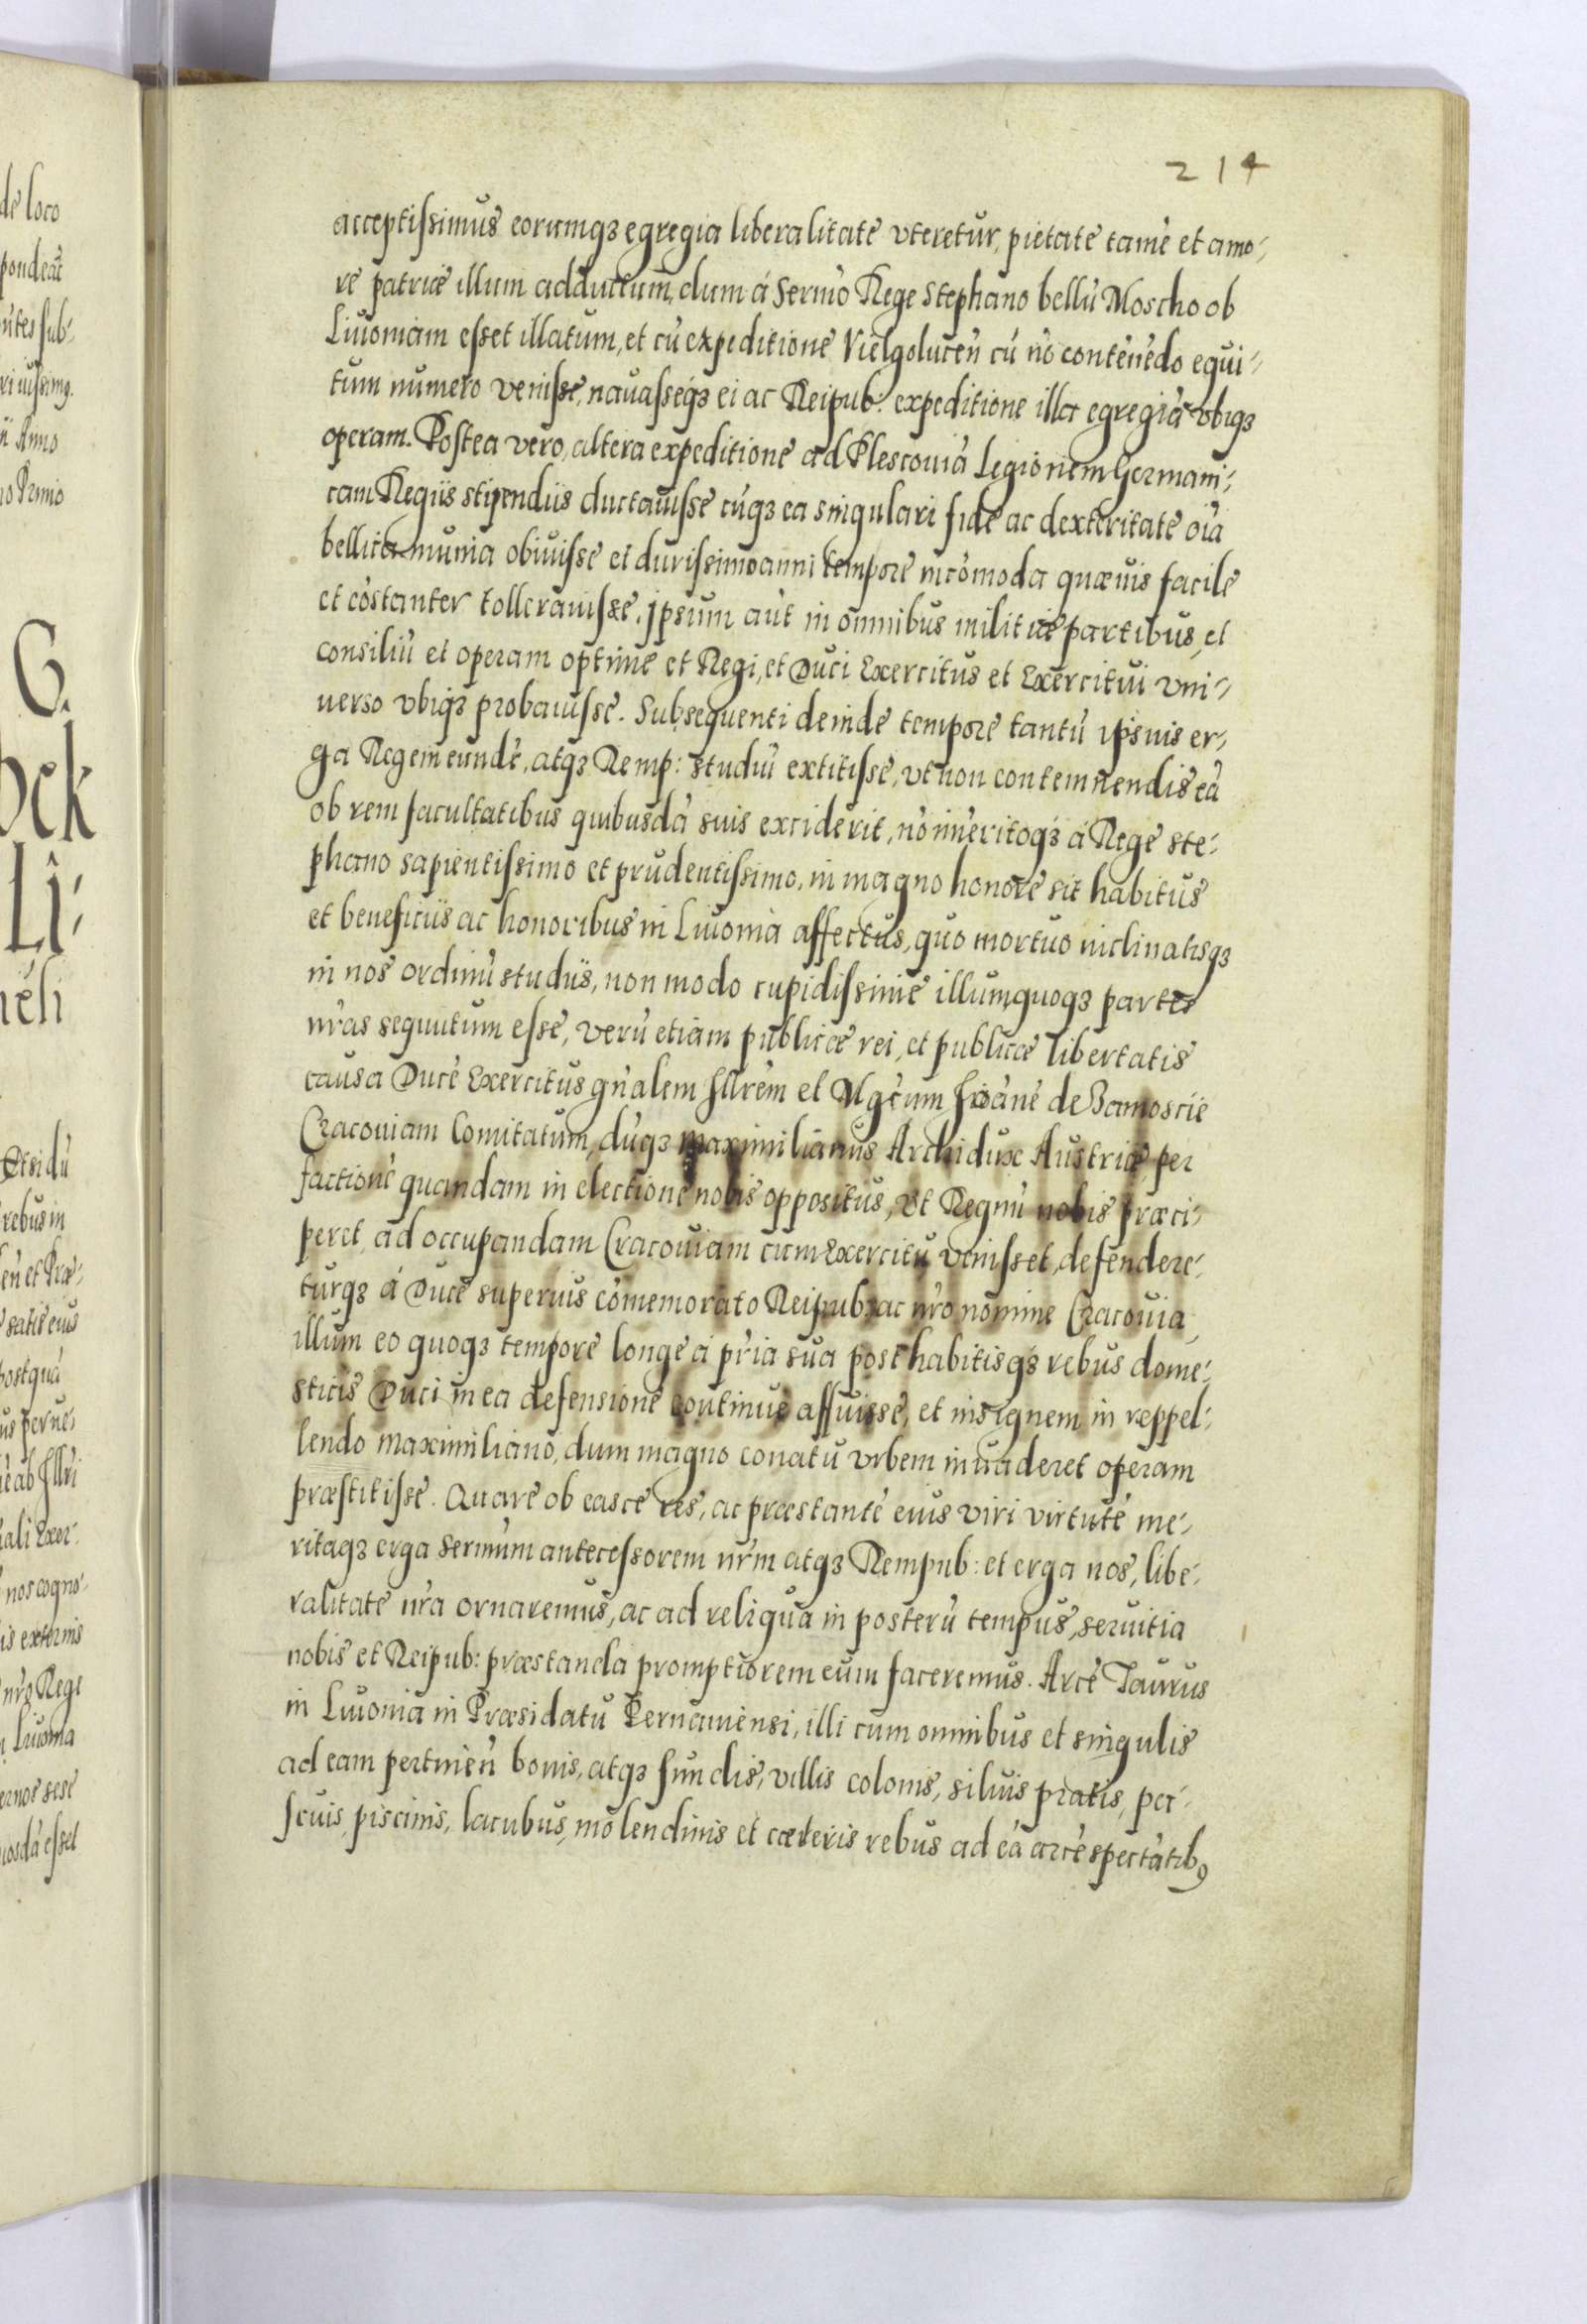 214
acceptissimus eorumqȝ egregia liberalitate vteretur, pietate tamē et amo-
re patriæ illum adductum, dum á Sermo Rege Stephano bellū Moscho ob
Liuoniam esset illatum, et cū expeditione Vielgolucen̄ cū nō contenēdo equi-
tum numero venisse, nauasseqȝ ei ac Reipub: expeditione illa egregiā vbiqȝ
operam. Postea vero, altera expeditione ad Plescouiā Legionem Germani-
cam Regiis stipendiis ductauisse cūqȝ ea singulari fide ac dexteritate oīa
bellica munia obiuisse et durissimo anni tempore incōmoda quæuis facile
et cōstanter tollerauisse. Ipsum aūt in omnibus militiæ partibus, et
consiliū et operam optime et Regi, et Duci Exercitus et Exercitui vni-
uerso vbiqȝ probauisse. Subsequenti deinde tempore tantū ipsius er-
ga Regem eundē, atqȝ Remp: studiū extitisse, vt non contemnendis eā
ob rem facultatibus quibusdā suis exciderit, nō im̄eritoqȝ á Rege Ste-
phano sapientissimo et prudentissimo, in magno honore sit habitus
et beneficiis ac honoribus in Liuonia affectus, quo mortuo inclinatisqȝ
in nos ordinū studiis, non modo cupidissime illumquoqȝ partes
nr̄as sequutum esse, verū etiam publicæ rei, et publicæ libertatis
causa Ducē Exercitus gn̄alem Illrēm et Mgcūm Ioānē de Zamoscie
Cracouiam Comitatum, dūqȝ Maximilianus Archidux Austriæ, per
factionē quandam in electione nobis oppositus, vt Regnū nobis præci-
peret, ad occupandam Cracouiam cum Exercitu venisset, defendere-
turqȝ á Duce superius cōmemorato Reipub: ac nr̄o nomine Cracouia,
illum eo quoqȝ tempore longe á pr̄ia sua posthabitisqȝ rebus dome-
sticis Duci in ea defensione continue affuisse, et insignem in reppel-
lendo Maximiliano, dum magno conatu vrbem inuaderet operam
præstitisse. Quare ob easce res, ac præstantē eius viri virtutē me-
ritaqȝ erga Sermūm antecessorem nr̄m atqȝ Rempub: et erga nos, libe-
ralitate nr̄a ornaremus, ac ad reliqua in posterū tempus, seruitia
nobis et Reipub: præstanda promptiorem eum faceremus. Arcē Taurus
in Liuonia in Præsidatu Pernauiensi, illi cum omnibus et singulis
ad eam pertinen̄ bonis, atqȝ fundis, villis colonis, siluis pratis, pe-
scuis, piscinis, lacubus, molendinis et cæteris rebus ad eā arcē spectātibꝰ